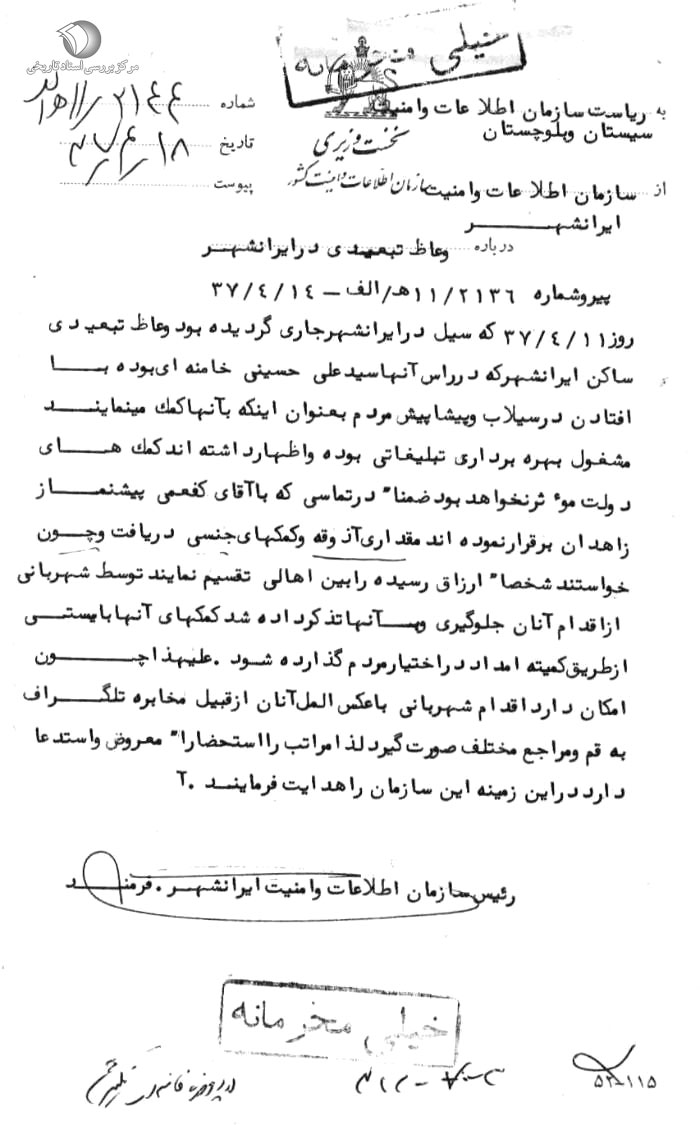 مرکز بررسی اسناد تاریخی
خیلی محرمانه
شماره ۲۱۴۴ /۱۱هـ الف
تاریخ ۱۸/۴/۳۷
پیوست
نخست وزیری
سازمان اطلاعات و امنیت کشور
به ریاست سازمان اطلاعات وامنیت
سیستان وبلوچستان
از سازمان اطلاعات وامنیت
ایرانشهر
درباره وعاظ تبعیدی درایرانشهر
پیروشماره ۱۱/۲۱۳۶هـ/الف – ۳۷/۴/۱۴
روز۳۷/۴/۱۱ که سیل درایرانشهرجاری گردیده بود وعاظ تبعیدی
ساکن ایرانشهرکه درراس آنهاسیدعلی حسینی خامنه ای بوده با
افتادن درسیلاب وپیشاپیش مردم بعنوان اینکه بآنهاکمك مینمایند
مشغول بهره برداری تبلیغاتی بوده واظهارداشته اندکمك های
دولت موء ثرنخواهد بود ضمنا" درتماسی که باآقای کفعمی پیشنماز
زاهدان برقرارنموده اند مقداری آذوقه وکمکهای جنسی دریافت وچون
خواستند شخصا" ارزاق رسیده رابین اهالی تقسیم نمایند توسط شهربانی
ازاقدام آنان جلوگیری وبآنهاتذکرداده شد کمکهای آنهابایستی
ازطریق کمیته امداد دراختیارمردم گذارده شود .علیهذاچون
امکان دارد اقدام شهربانی باعکس العمل آنان ازقبیل مخابره تلگراف
به قم ومراجع مختلف صورت گیرد لذا مراتب رااستحضارا" معروض واستدعا
دارد دراین زمینه این سازمان راهدایت فرمایند .آ
رئیس سازمان اطلاعات وامنیت ایرانشهر.فرمند
خیلی محرمانه
۵۲-۱۱۵